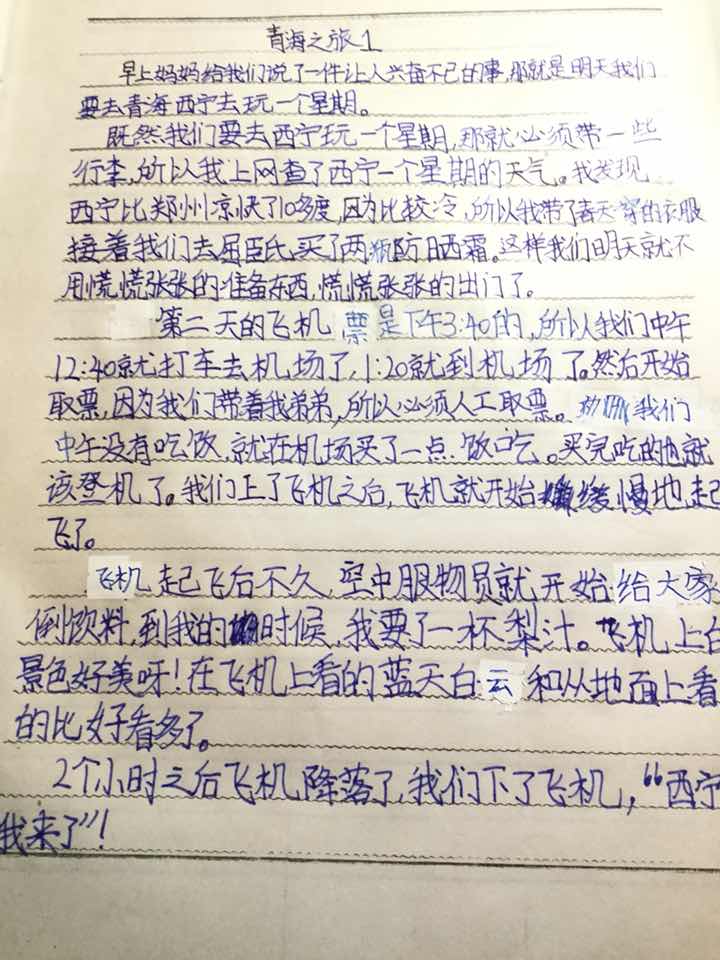 青海之旅1
早上妈妈给我们说了一件让人兴奋不已的事,那就是明天我们
要去青海西宁去玩一个星期。
既然我们要去西宁玩一个星期,那就必须带一些
行李,所以我上网查了西宁一个星期的天气。我发现
西宁比郑州凉快了10多度,因为比较冷,所以我带了春天穿的衣服
接着我们去屈臣氏买了两瓶防日晒霜。这样我们明天就不
用慌慌张张的准备东西,慌慌张张的出门了。
第二天的飞机票是下午3:40的,所以我们中午
12:40就打车去机场了,1:20就到机场了。然后开始
取票,因为我们带着我弟弟,所以必须人工取票。我们
中午没有吃饭,就在机场买了一点饭吃。买完吃的也就
该登机了。我们上了飞机之后,飞机就开始缓慢地起
飞了。
飞机起飞后不久,空中服物员就开始给大家
倒饮料,到我的时候,我要了一杯梨汁。飞机上
景色好美呀!在飞机上看的蓝天白云和从地面上看
的比好看多了。
2个小时之后飞机降落了,我们下了飞机,“西宁
我来了”!